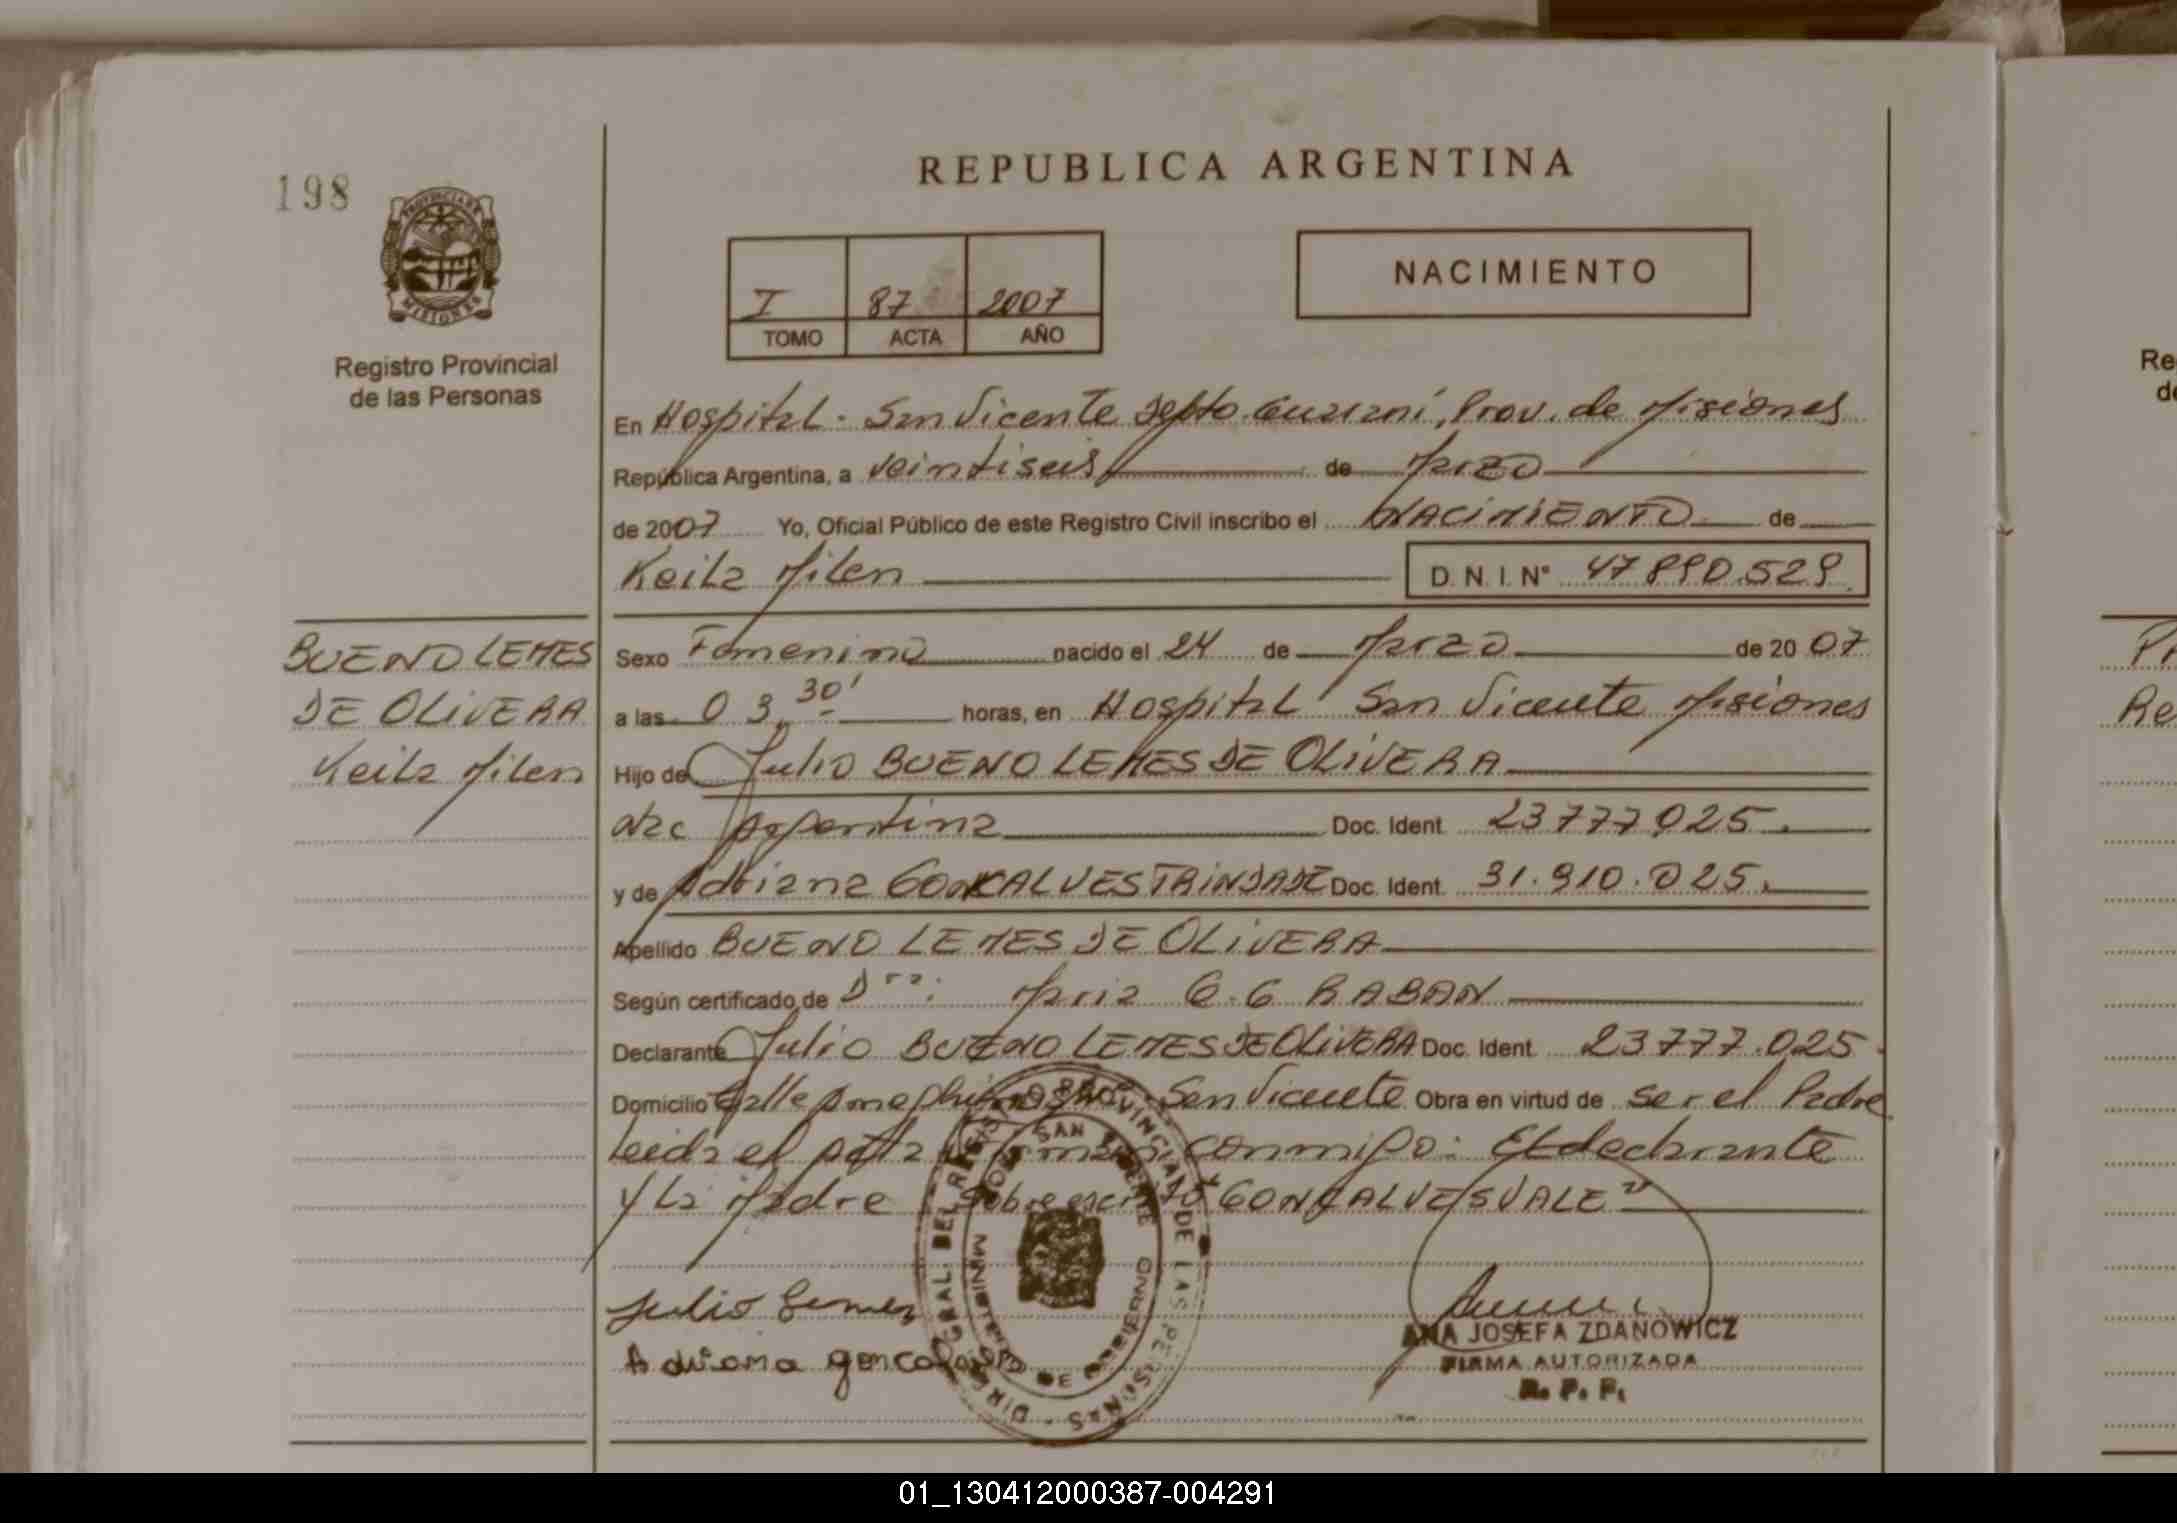 198
REPUBLICA ARGENTINA
PROVINCIA DE
MISIONES
Registro Provincial
de las Personas
I 87 2007
TOMO ACTA AÑO
NACIMIENTO
En Hospital - San Vicente Depto. Guaraní, Prov. de Misiones
República Argentina, a veintiseis de Marzo
de 2007 Yo, Oficial Público de este Registro Civil inscribo el NACIMIENTO de
Keila Milen D.N.I. Nº 47.890.529.
BUENO LEMES
DE OLIVERA
Keila Milen
Sexo Femenino nacido el 24 de Marzo de 2007
a las 03,30' horas, en Hospital San Vicente Misiones
Hijo de Julio BUENO LEMES DE OLIVERA
Nac Argentina Doc. Ident. 23777025.
y de Adriana GONCALVES TRINDADE Doc. Ident. 31.910.025.
Apellido BUENO LEMES DE OLIVERA
Según certificado de Dra: Maria G. RABAN
Declarante Julio BUENO LEMES DE OLIVERA Doc. Ident. 23777.025.
Domicilio Calle San Vicente Obra en virtud de ser el Padre
Leida el Acta conmigo: El declarante
y La Madre Sobre escrito "GONCALVES VALE"
Julio
Adriana
DIR. GRAL. DEL REGISTRO PROVINCIAL DE LAS PERSONAS
SAN VICENTE
MINISTERIO DE GOBIERNO
ANA JOSEFA ZDANOWICZ
FIRMA AUTORIZADA
R. P. P.
Re
de
Re
01_130412000387-004291